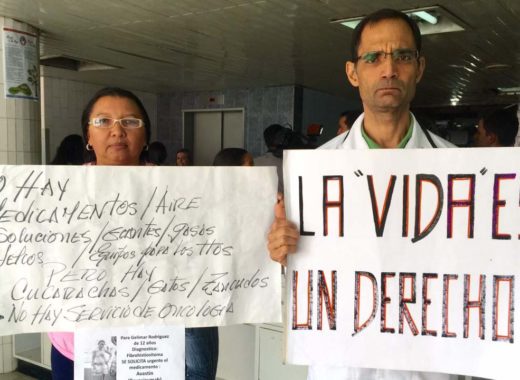 NO HAY
MEDICAMENTOS / AIRE
SOLUCIONES / GUANTES / GASAS
YELCOS / EQUIPOS PARA LOS HTOS
PERO HAY
CUCARACHAS / GATOS / ZANCUDOS
- NO HAY SERVICIO DE ONCOLOGÍA
Para Gelimar Rodríguez
de 12 años
Diagnostico:
SE SOLICITA urgente el
medicamento :
Avastin
LA "VIDA" ES
UN DERECHO